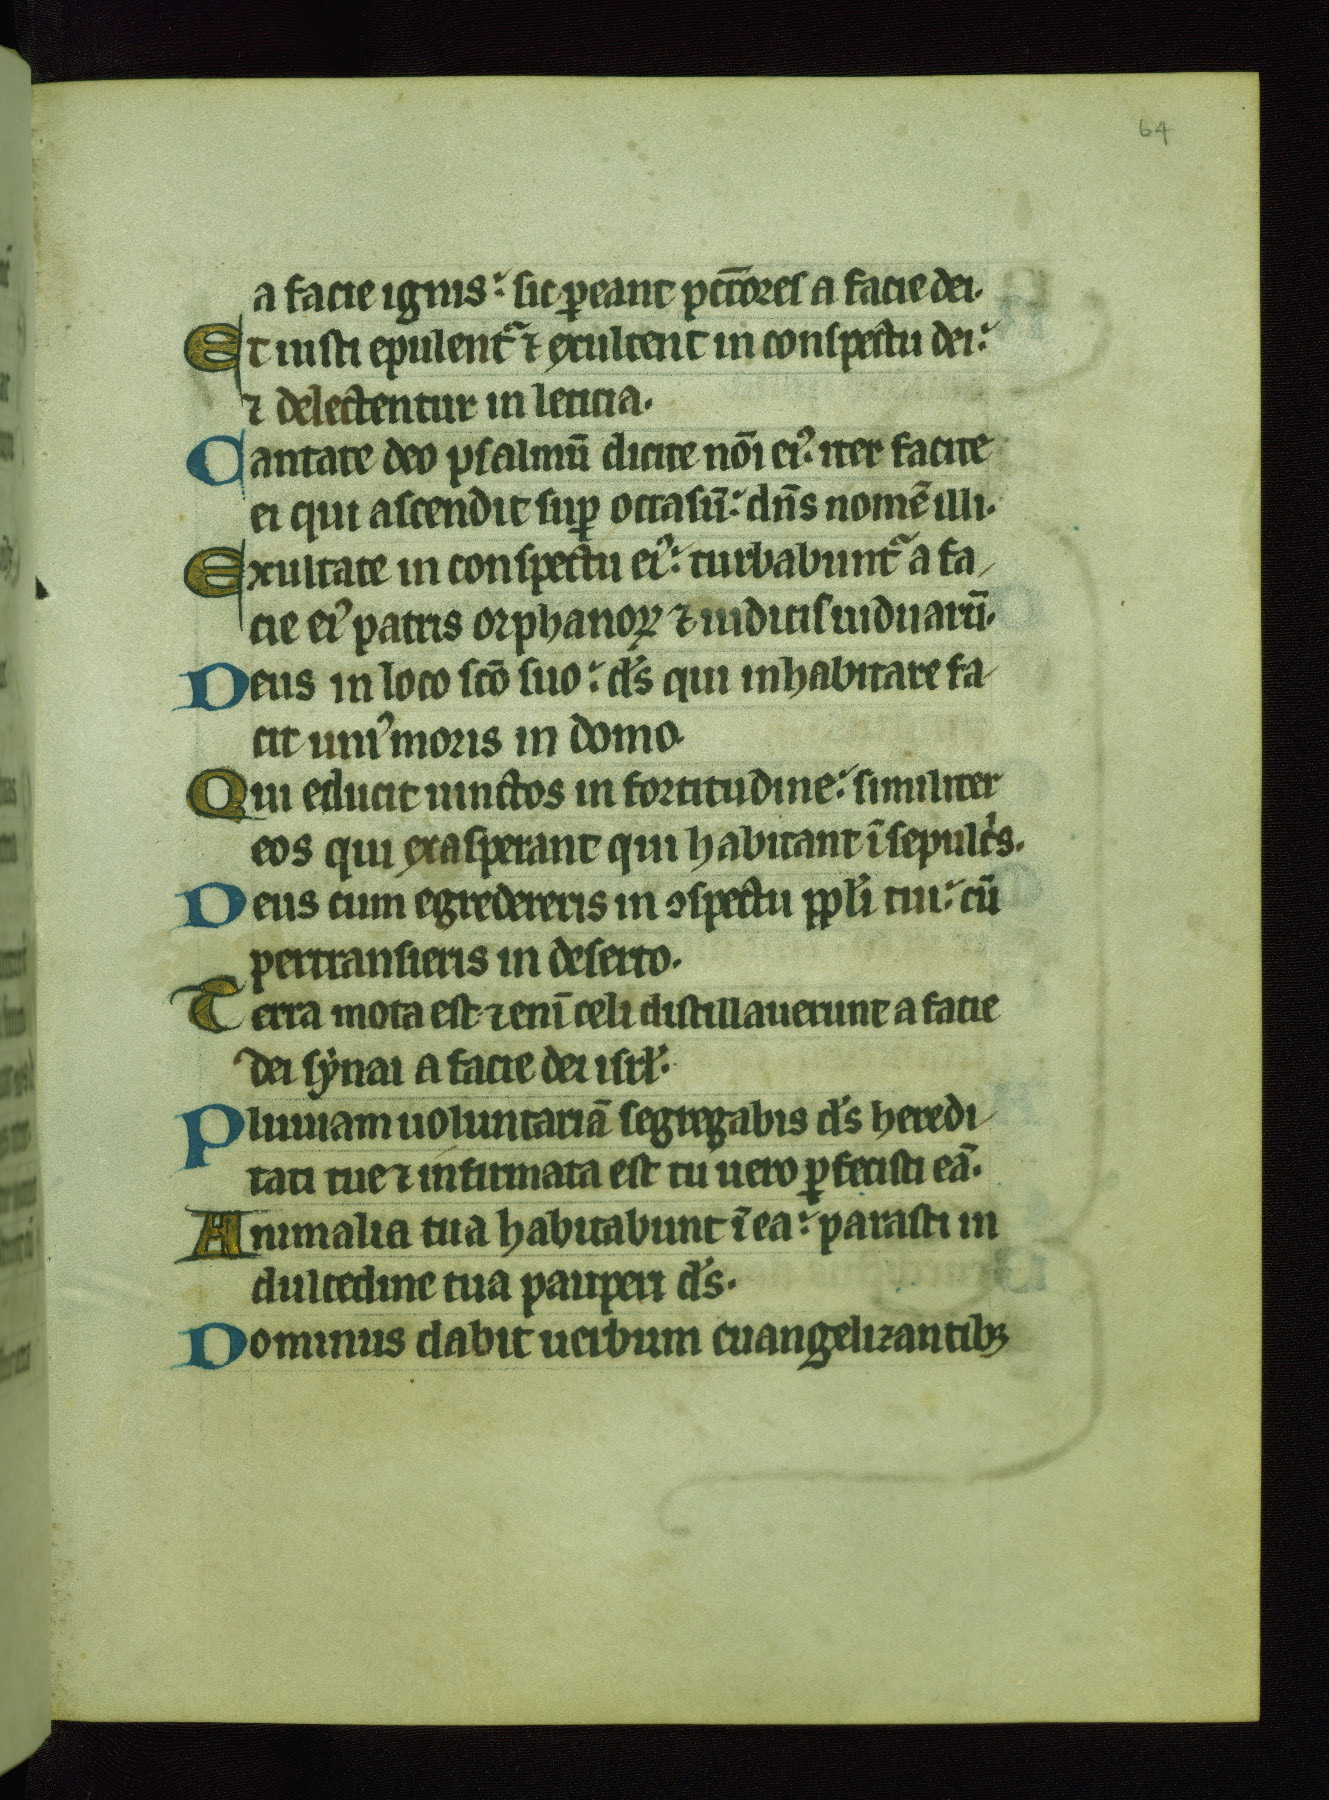 64
a facie ignis: sic p̱eant pctõres a facie dei.
Et iusti epulent᷑ ⁊ exultent in conspectu dei:
⁊ delectentur in leticia.
Cantate deo psalmū dicite nōi eiꝰ: iter facite
ei qui ascendit suꝑ occasū: dn̄s nomē illi.
Exultate in conspectu eiꝰ: turbabunt᷑ a fa
cie eiꝰ patris orphanoꝝ ⁊ iudicis uiduarū.
Deus in loco scō suo: ds̄ qui inhabitare fa
cit uniꝰ moris in domo.
Qui educit uinctos in fortitudine: similiter
eos qui exasperant qui habitant ī sepulcs̄.
Deus cum egredereris in ꝯspectu ppl̄i tui: cū
pertransieris in deserto.
Terra mota est ⁊ enī celi distillauerunt a facie
dei sẏnai a facie dei isrl̄.
Pluuiam uoluntariā segregabis ds̄ heredi
tati tue ⁊ infirmata est tu uero ꝑfecisti eā.
Animalia tua habitabunt ī ea: parasti in
dulcedine tua pauperi ds̄.
Dominus dabit uerbum euangelizantibꝫ